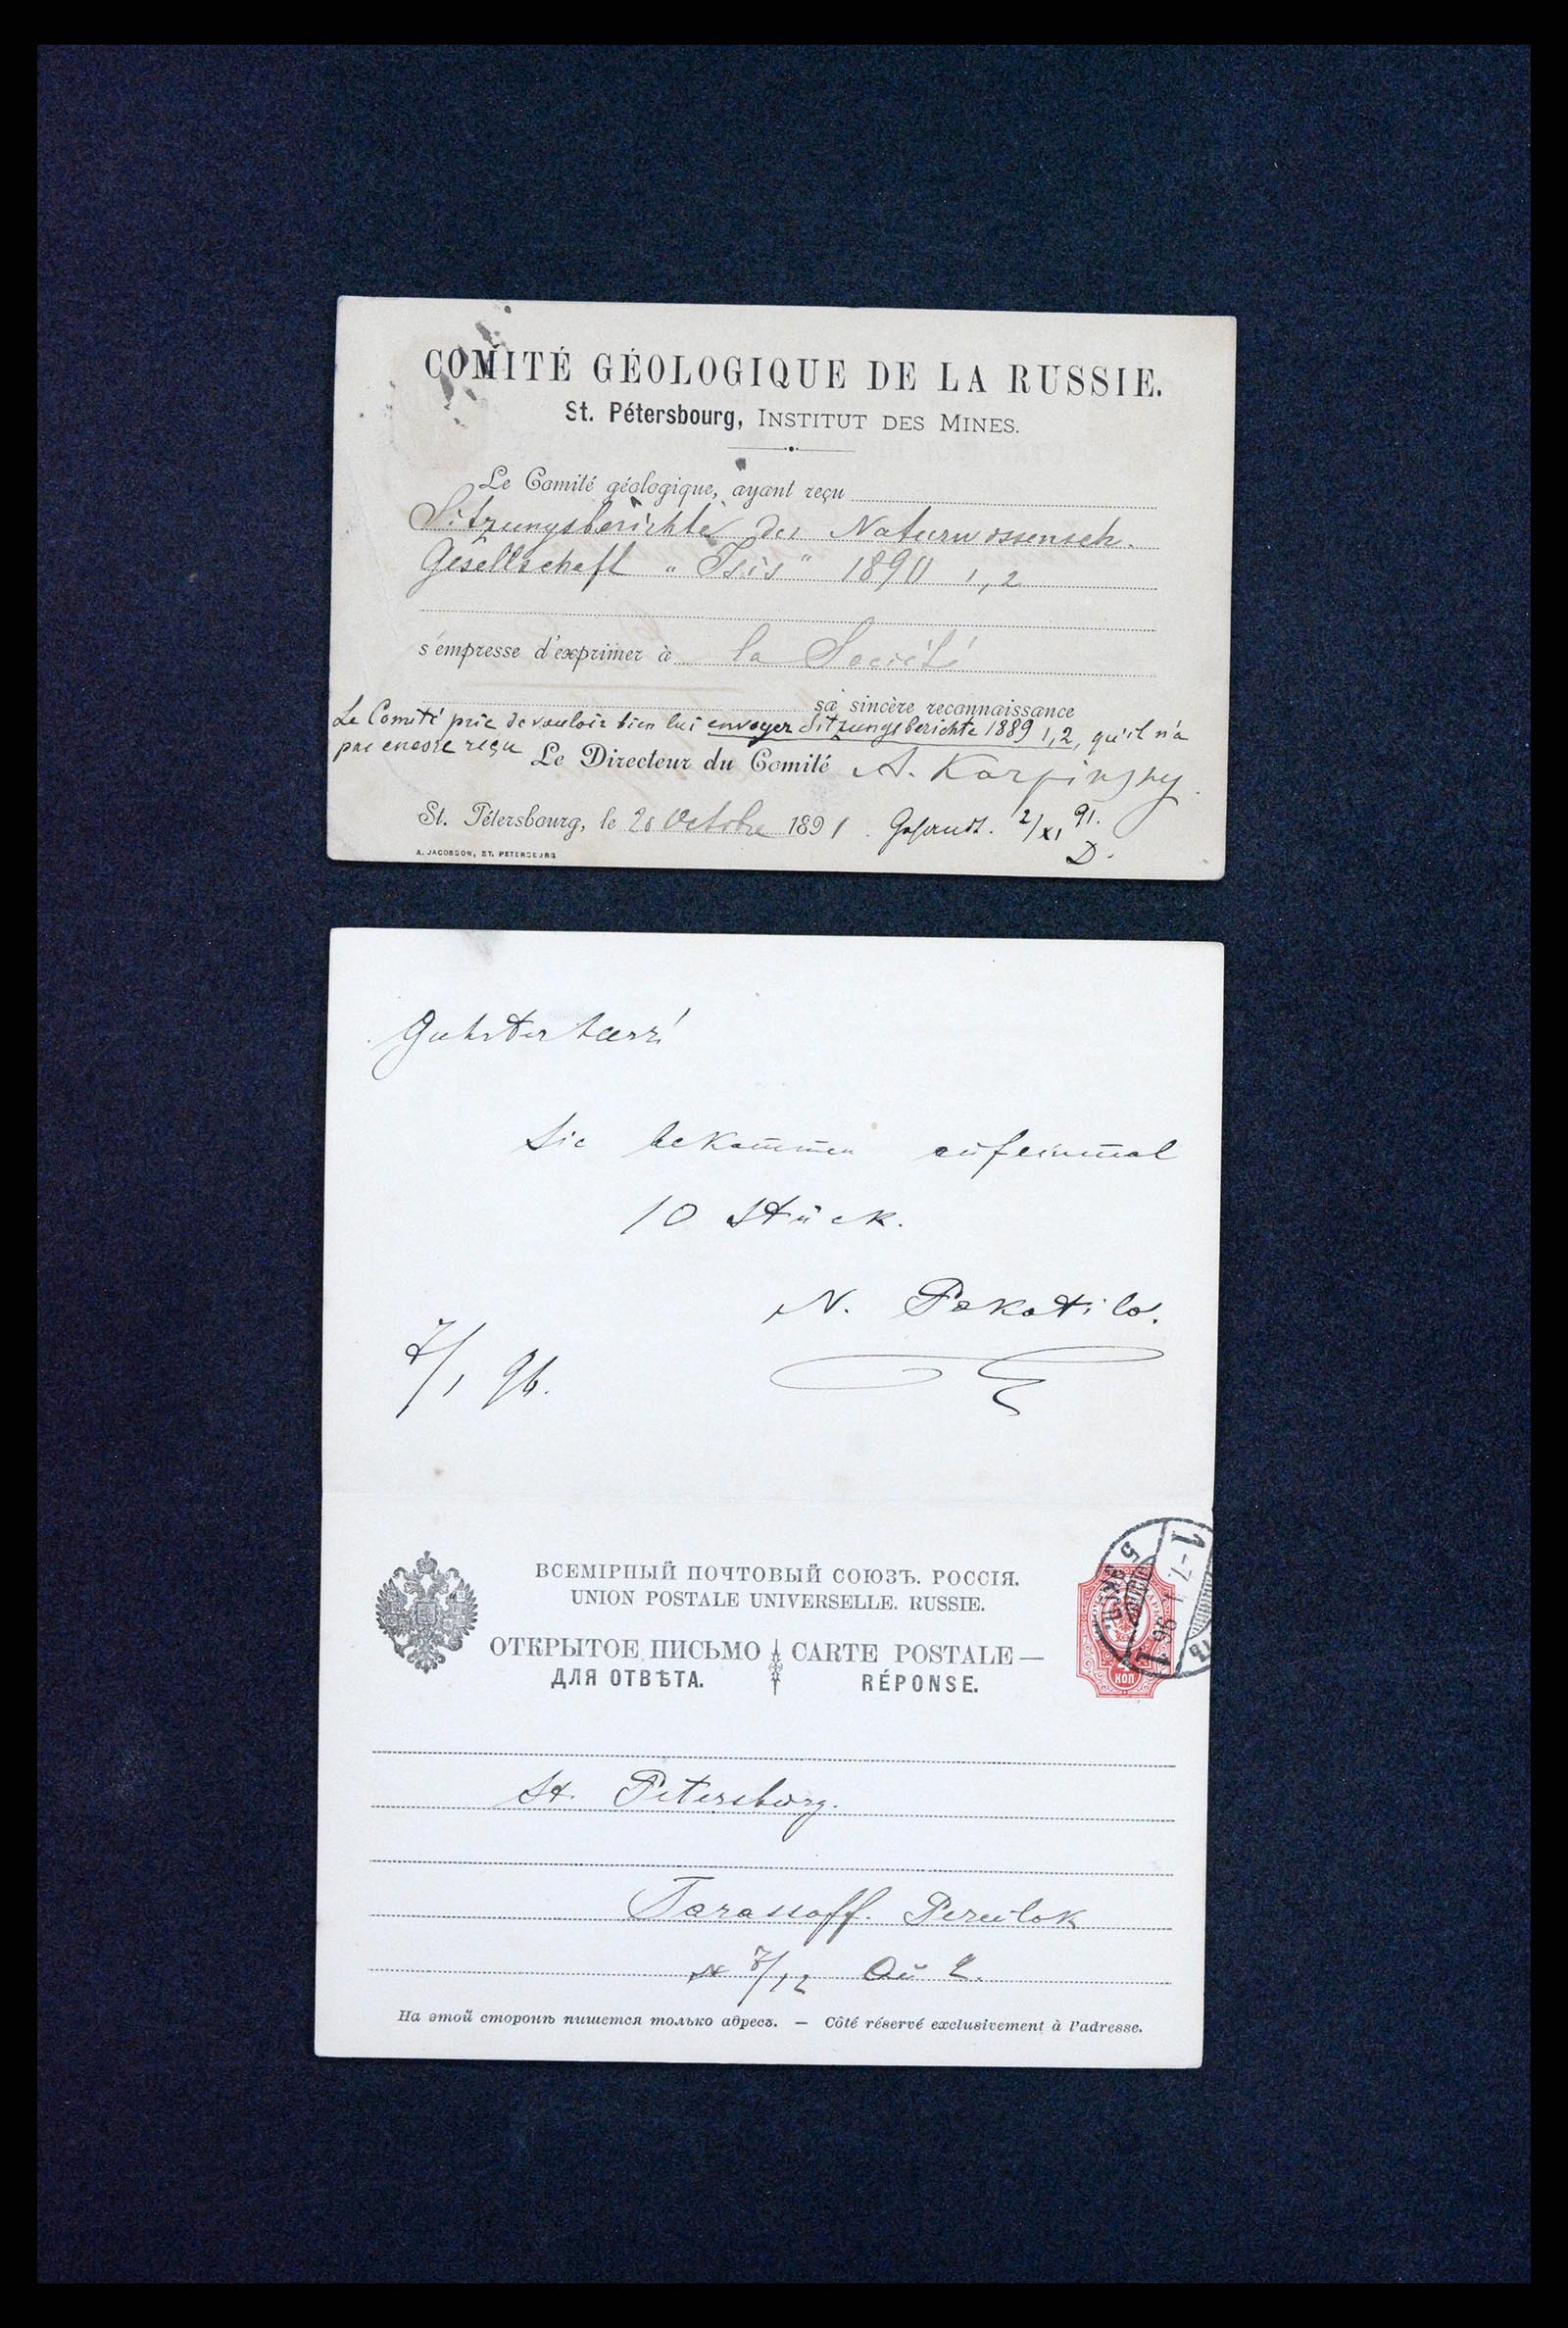 COMITÉ GÉOLOGIQUE DE LA RUSSIE.
St. Pétersbourg, INSTITUT DES MINES.
Le Comité géologique, ayant reçu
Sitzungsberichte der Naturwissensch.
Gesellschaft „Isis“ 1890 1,2
s'empresse d'exprimer à la Société
sa sincère reconnaissance
Le Comité prie de vouloir bien lui envoyer Sitzungsberichte 1889 1,2, qu'il n'a
pas encore reçu
Le Directeur du Comité A. Karpinsky.
St. Pétersbourg, le 20 Octobre 1891. Gesandt. 2/XI 91.
D.
A. JACOBSON, ST. PETERSBURG
Gehrter Herr!
Sie bekommen aufeinmal
10 Stück.
N. Pokotilo.
7/1 96.
ВСЕМІРНЫЙ ПОЧТОВЫЙ СОЮЗЪ. РОССІЯ.
UNION POSTALE UNIVERSELLE. RUSSIE.
ОТКРЫТОЕ ПИСЬМО CARTE POSTALE —
ДЛЯ ОТВѢТА. RÉPONSE.
КОП
St. Petersburg.
Tarassoff. Pereulok
№ 7/12 2.
На этой сторонѣ пишется только адресъ. — Côté réservé exclusivement à l'adresse.